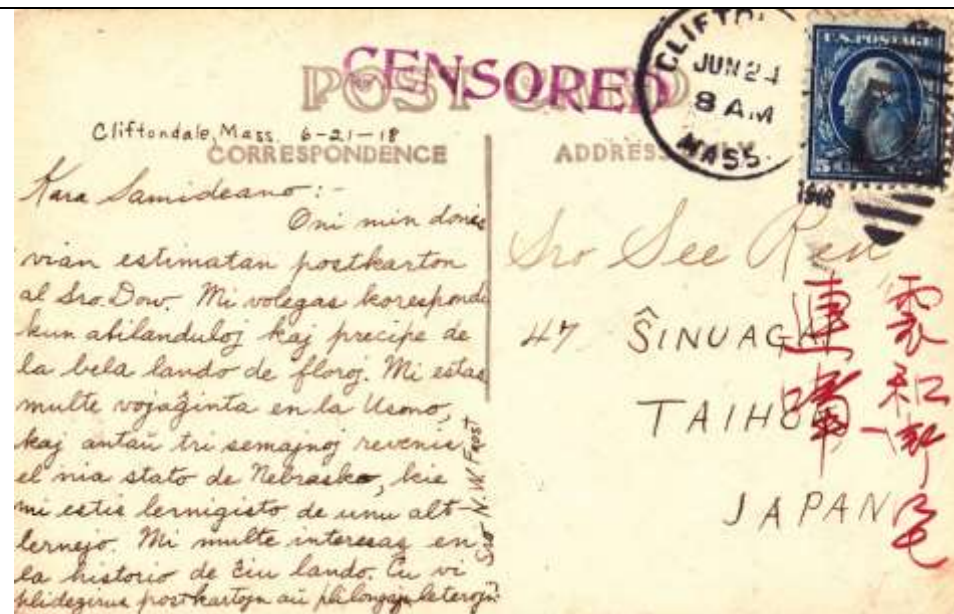 CENSORED
POST CARD
CLIFTO
JUN 24
8 AM
MASS.
1918
U.S. POSTAGE
Cliftondale, Mass. 6-21-18
CORRESPONDENCE
ADDRESS ONLY
Kara Samideano:-
Oni min donis
vian estimatan postkarton
al Sro. Dow. Mi volegas korespondi
kun alilanduloj kaj precipe de
la bela lando de floroj. Mi estas
multe vojaĝinta en la Usono,
kaj antaŭ tri semajnoj revenis
el nia stato de Nebrasko, kie
mi estis lernigisto de unu alt-
lernejo. Mi multe interesas en
la historio de ĉiu lando. Ĉu vi
postkartojn aŭ pli longajn leterojn
Sro N. W. Frost
Sro See Ren
47 ŜINUAGAI
TAIHOKU
JAPAN
連